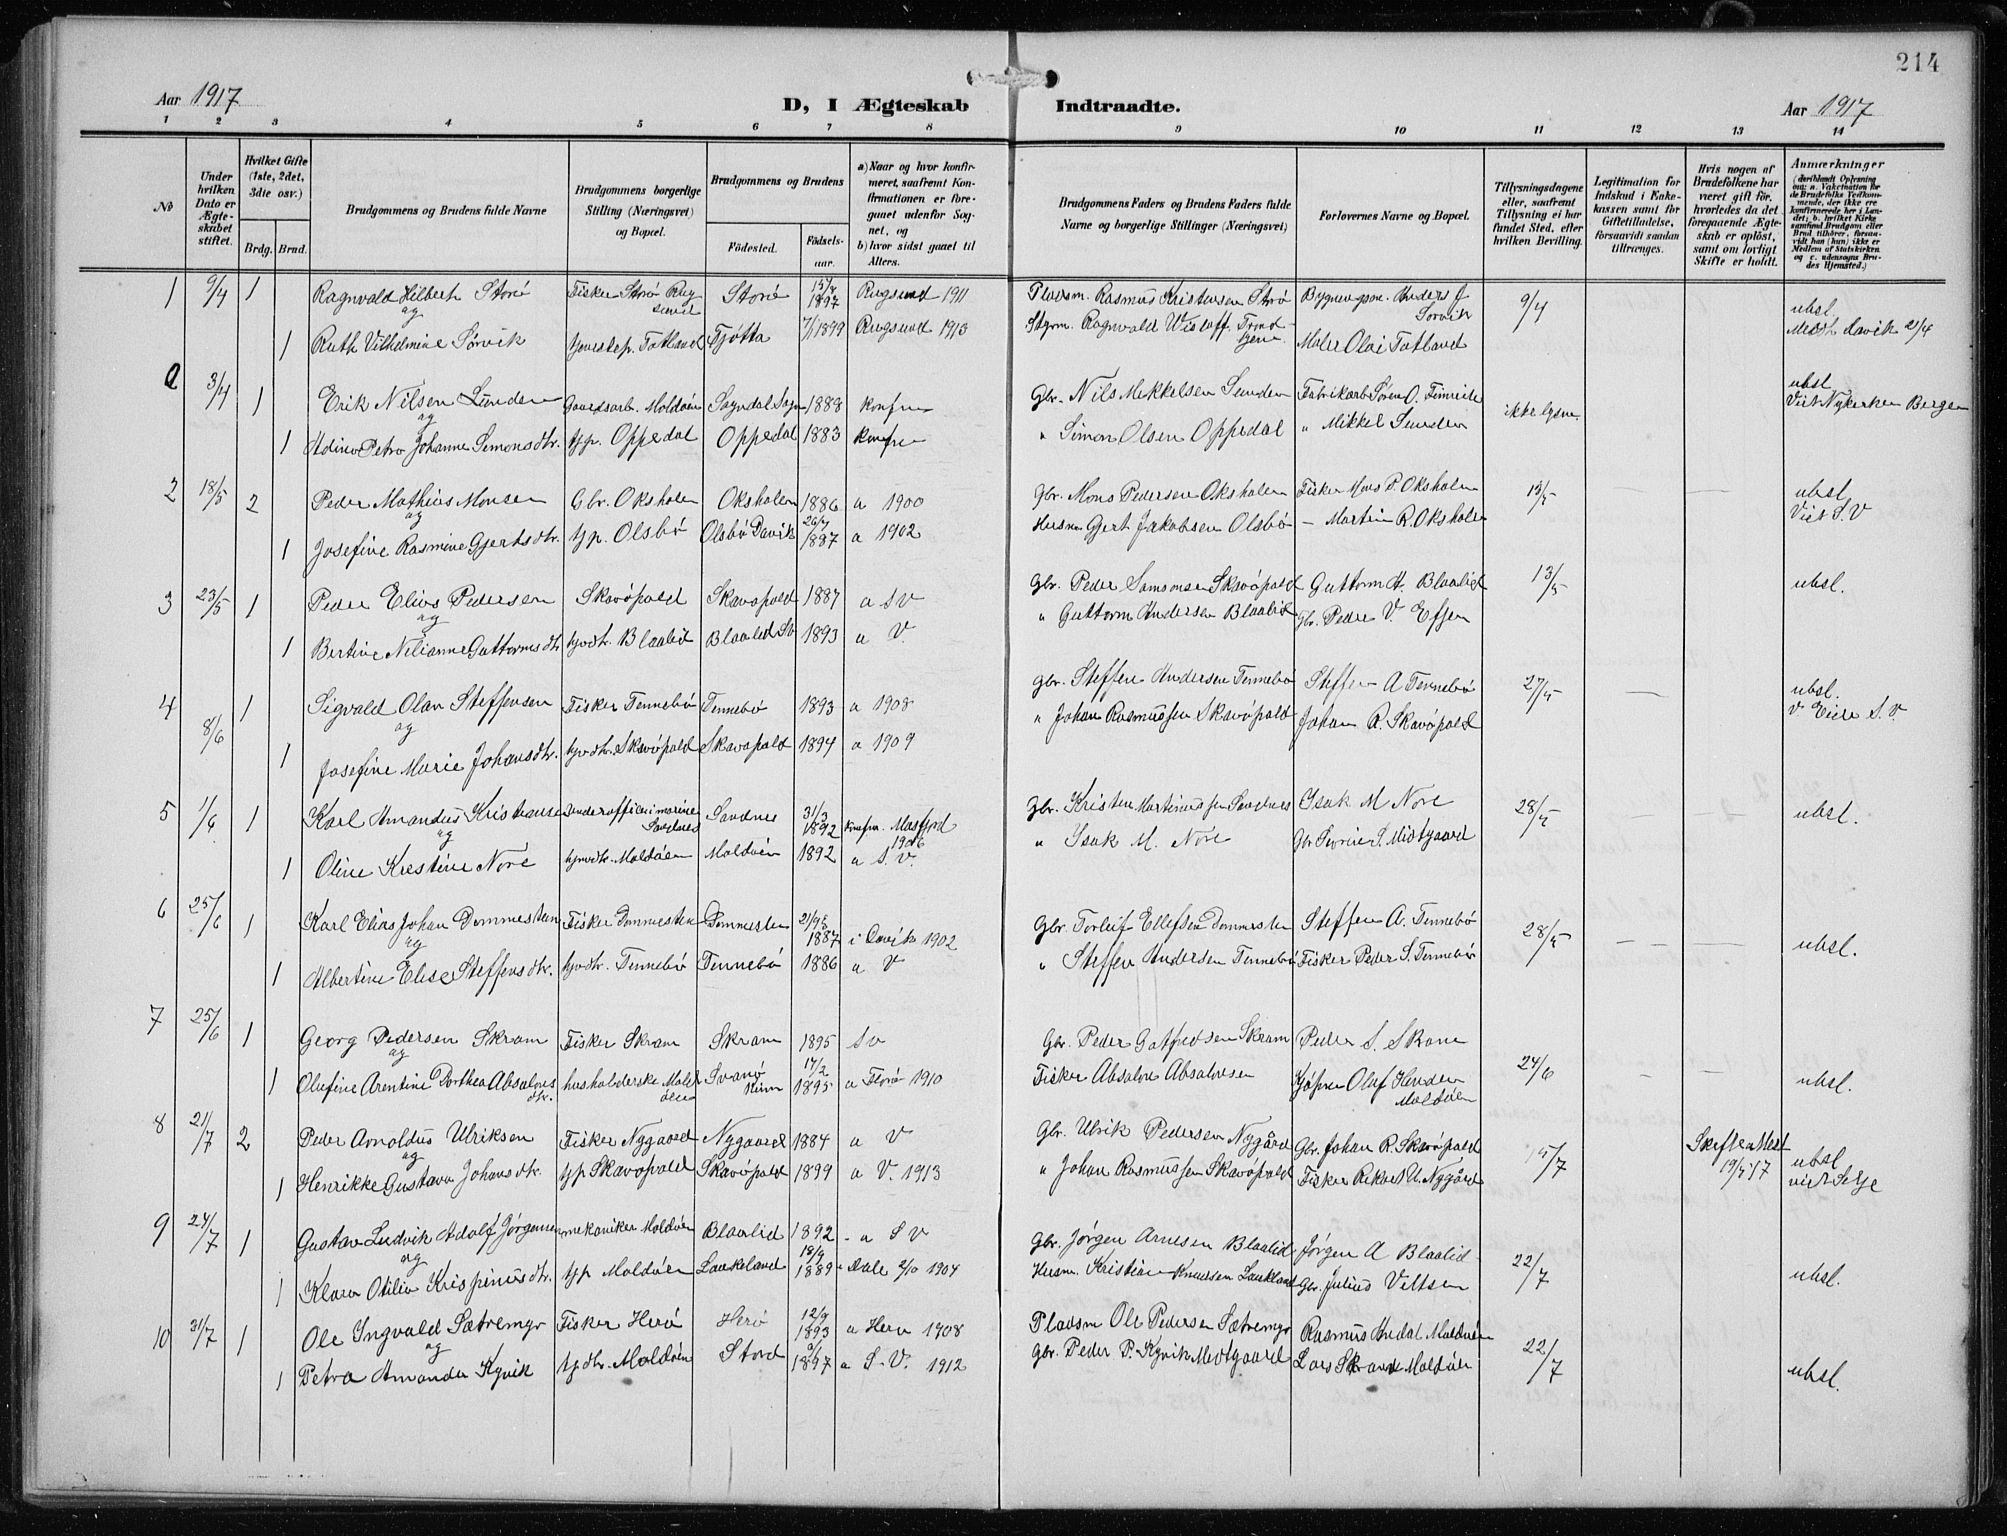 214
Aar 1917
D, I Ægteskab
Indtraadte.
Aar 1917
1 2 3 4 5 6 7 8 9 10 11 12 13 14
No
Under hvilken Dato er Ægteskabet stiftet.
Hvilket Gifte (1ste, 2det, 3die osv.)
Brdg. Brud.
Brudgommens og Brudens fulde Navne
Brudgommens borgerlige Stilling (Næringsvei) og Bopæl.
Brudgommens og Brudens
Fødested.
Fødselsaar.
a) Naar og hvor konfirmeret, saafremt Konfirmationen er foregaaet udenfor Sognet, og
b) hvor sidst gaaet til Alters.
Brudgommens Faders og Brudens Faders fulde Navne og borgerlige Stillinger (Næringsvei)
Forlovernes Navne og Bopæl.
Tillysningsdagene eller, saafremt Tillysning ei har fundet Sted, efter hvilken Bevilling.
Legitimation for Indskud i Enkekassen samt for Giftetilladelse, forsaavidt saadan tiltrænges.
Hvis nogen af Brudefolkene har været gift før, hvorledes da det foregaaende Ægteskab er opløst, samt om lovligt Skifte er holdt.
Anmærkninger
(deriblandt Oplysning om: a. Vakcination for de Brudefolks Vedkommende, der ikke ere konfirmerede her i Landet; b. hvilket Kirkesamfund Brudgom eller Brud tilhører, forsaavidt han (hun) ikke er Medlem af Statskirken og c. udensogns Brudes Hjemsted.)
1 9/4 1 Ragnvald Hilbert Storø Fisker Storø Rugsund Storø 1897 Rugsund 1911 Pladsm. Rasmus Kristensen Storø Anders J Sørvik 9/4 ubsl.
og
1 Ruth Vilhelmine Sørvik Tatland Tjøtta 7/1 1899 Rugsund 1913 Styrm. Ragnvald Wisløff Trondhjem Maler Olai Tatland Davik 21/4
3/4 1 Erik Nilsen Sunden Gaardsarb. Moldøen Sogndal Sogn 1888 konfr Gbr. Nils Mikkelsen Sunden Fabrikarb Søren O. Timreite ikke lysn. ubsl
og
1 Adina Petra Johanne Simonsdtr. tjp. Oppedal Oppedal 1883 konfr " Simon Olsen Oppedal " Mikkel Sunden Viet Nykirken Bergen
2 18/5 2 Peder Mathias Monsen Gbr. Oksholen Oksholen 1886 a 1900 Gbr. Mons Pedersen Oksholen Fisker Mons P. Oksholen 13/5 — — ubsl
og
1 Josefine Rasmine Gjertsdtr. tjp. Olsbø Olsbø Davik 26/7 1887 a 1902 Husm Gjert Jakobsen Olsbø — Martin R. Oksholen Viet S.V
3 23/5 1 Peder Elias Pedersen Skavøpold Skavøpold 1887 a S V Gbr. Peder Samsonsen Skavøpold Guttorm A. Blaalid 13/5 ubsl.
og
1 Bertine Nilianne Guttormsdtr tjvdtr. Blaalid Blaalid SV 1893 a V. " Guttorm Andersen Blaalid Gbr. Peder V.
4 8/6 1 Sigvald Olav Steffensen Fisker Tennebø Tennebø 1893 a 1908 Gbr. Steffen Andersen Tennebø Steffen A Tennebø 27/5 — ubsl.
og
1 Josefine Marie Johansdtr. hjvdtr. Skavøpold Skavøpold 1894 a 1909 " Johan Rasmussen Skavøpold Johan R. Skavøpold S.V.
5 1/6 1 Karl Amandus Kristiansen Underofficer i marine Sandnes Sandnes 31/3 1892 Konfr. Masfjord 1906 Gbr. Kristen Martinussen Sandnes Isak M Nore 28/5 — — ubsl.
og
1 Oline Kristine Nore hjvdtr. Moldøen Moldøen 1892 a S.V. " Isak M. Nore Gbr Severin S. Midtgaard
6 25/6 1 Karl Elias Johan Dommesten Fisker Dommesten Dommesten 1887 i Davik 1902 Gbr. Torleif Ellefsen Dommesten Steffen A. Tennebø 28/5 — — ubsl.
og
1 Albertine Elise Steffensdtr. hjvdtr. Tennebø Tennebø 1886 a V " Steffen Andersen Tennebø Fisker Peder S. Tennebø
7 25/6 1 Georg Pedersen Skram Fisker Skram Skram 1895 S V Gbr. Peder Gotfredsen Skram Peder S. 24/6 — — ubsl.
og
1 Olufine Arentine Dorthea Absalonsdtr. husholderske Moldøen Svanø Kinn 17/2 1895 a Florø 1910 Fisker Absalon Absalonsen Kjøpm Oluf Henden Moldøen
8 21/7 2 Peder Arnoldus Ulriksen Fisker Nygaard Nygaard 1884 a V Gbr. Ulrik Pedersen Nygård Gbr. Johan R. Skavøpold 15/7 Skifteattest 19/7 17 ubsl
og
1 Henrikke Gustava Johansdtr. tjp. Skavøpold Skavøpold 1899 a V. 1913 " Johan Rasmussen Skavøpold Fisker Rikard U. Nygård viet Selje
9 24/7 1 Gustav Ludvik Adolf Jørgensen mekaniker Moldøen Blaalid 1892 - a S V Gbr. Jørgen Arnesen Blaalid Jørgen A Blaalid 22/7 ubsl.
og
1 Klara Otilia Krispinusdtr. tjp Moldøen Laukeland 18/9 1889 - Dale 2/10 1904 Husm. Kristian Knudsen Laukland Gbr. Julius Veltsen
10 31/7 1 Ole Ingvald Sætremyr Fisker Herø Herø 12/9 1893 a Herø 1908 Pladsm Ole Pedersen Sætremyr Rasmus Moldøen 22/7 ubsl.
og
1 Petra Amanda Kyvik hjdtr. Moldøen Stord 1897 a S.V. 1912 Gbr. Peder P. Kyvik Midtgaard Lars Moldøen